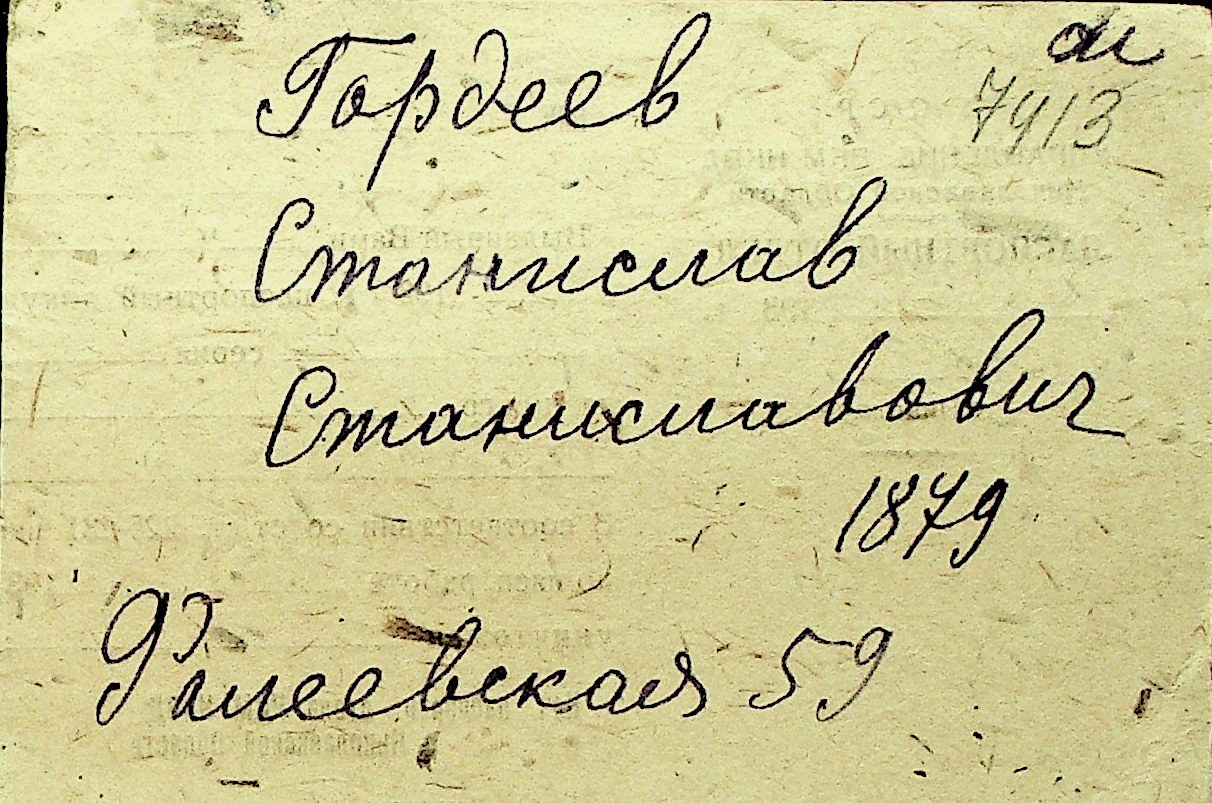 Гордеев
7413
Станислав
Станиславович
1879
Фалеевская 59